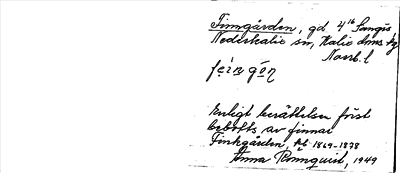 Finngården, gd 4 Sangis
Nederkalix sn, Kalix
Norrb. l
Enligt berättelser först
bebotts av finnar
Finkgården, 1869-1878
Anna Rönnquist, 1949